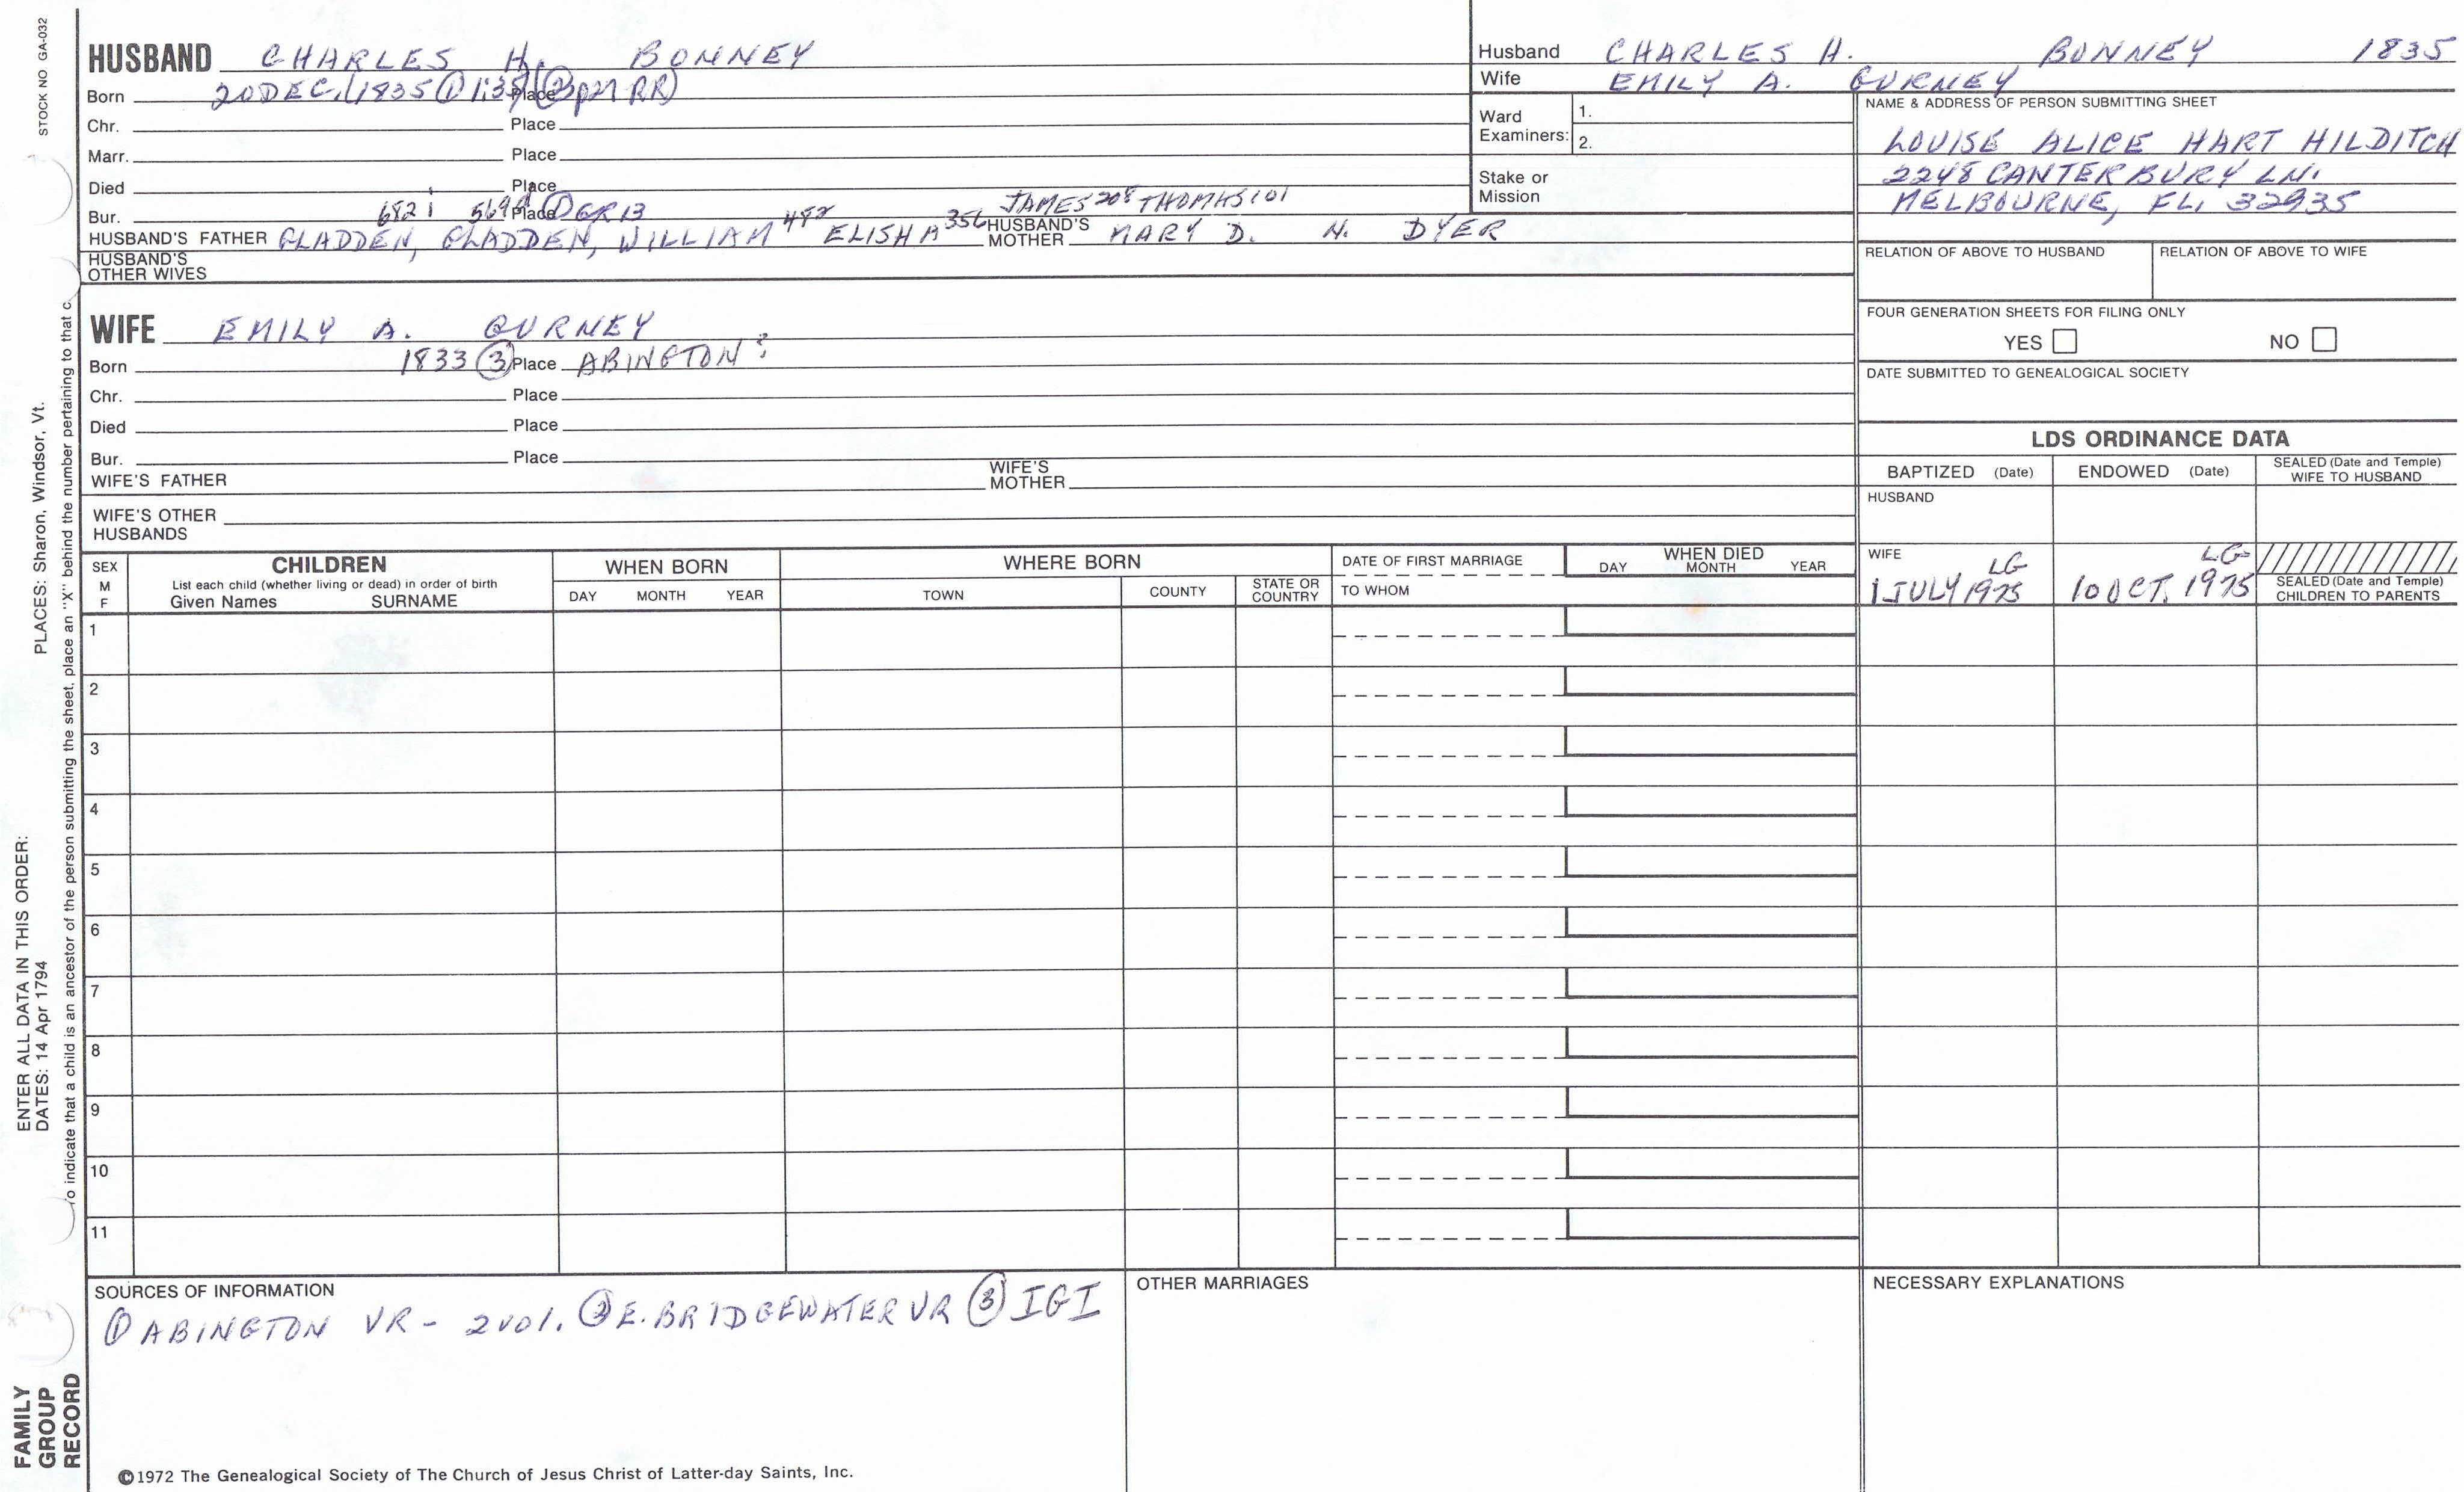 STOCK NO GA-032
PLACES: Sharon, Windsor, Vt.
ENTER ALL DATA IN THIS ORDER:
DATES: 14 Apr 1794
o indicate that a child is an ancestor of the person submitting the sheet, place an "X" behind the number pertaining to that c
FAMILY
GROUP
RECORD
HUSBAND CHARLES H. BONNEY
Born 20 DEC. 1835 ① Place RR)
Chr. Place
Marr. Place
Died Place
Bur. Place
682 569 ① GR13 JAMES 208 THOMAS 101
HUSBAND'S FATHER GLADDEN, GLADDEN, WILLIAM 482 ELISHA 356 HUSBAND'S MOTHER MARY D. N. DYER
HUSBAND'S
OTHER WIVES
WIFE EMILY A. GURNEY
Born 1833 ③ Place ABINGTON?
Chr. Place
Died Place
Bur. Place
WIFE'S FATHER WIFE'S MOTHER
WIFE'S OTHER
HUSBANDS
Husband CHARLES H. BONNEY 1835
Wife EMILY A. GURNEY
Ward Examiners: 1.
2.
Stake or
Mission
NAME & ADDRESS OF PERSON SUBMITTING SHEET
LOUISE ALICE HART HILDITCH
2248 CANTERBURY LN.
MELBOURNE, FL. 32935
RELATION OF ABOVE TO HUSBAND RELATION OF ABOVE TO WIFE
FOUR GENERATION SHEETS FOR FILING ONLY
YES NO
DATE SUBMITTED TO GENEALOGICAL SOCIETY
LDS ORDINANCE DATA
BAPTIZED (Date) ENDOWED (Date) SEALED (Date and Temple) WIFE TO HUSBAND
HUSBAND
WIFE LG LG
1 JULY 1975 10 OCT. 1975
SEALED (Date and Temple)
CHILDREN TO PARENTS
SEX
M
F
CHILDREN
List each child (whether living or dead) in order of birth
Given Names SURNAME
WHEN BORN
DAY MONTH YEAR
WHERE BORN
TOWN COUNTY STATE OR COUNTRY
DATE OF FIRST MARRIAGE
TO WHOM
WHEN DIED
DAY MONTH YEAR
1
2
3
4
5
6
7
8
9
10
11
SOURCES OF INFORMATION
① ABINGTON VR - 2 vol. ② E. BRIDGEWATER VR ③ IGI
OTHER MARRIAGES
NECESSARY EXPLANATIONS
©1972 The Genealogical Society of The Church of Jesus Christ of Latter-day Saints, Inc.